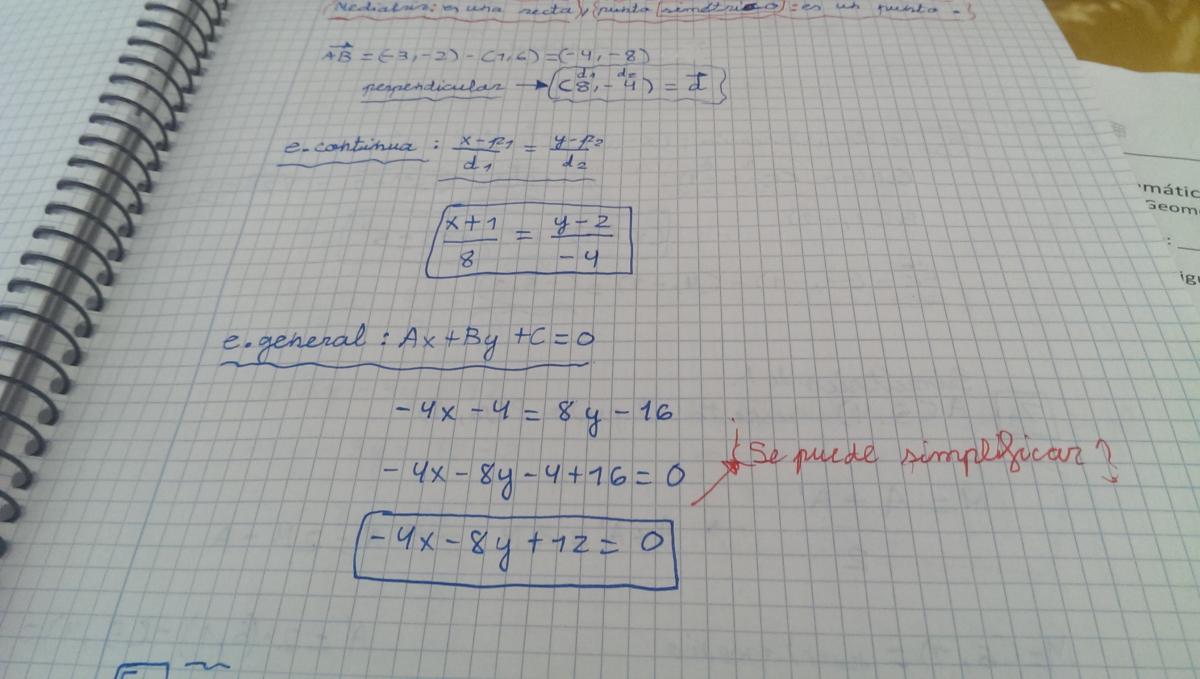 (Mediatriz: es una recta), (punto simétrico): es un punto.}
AB = (-3, -2) - (1, 6) = (-4, -8)
d1 d2
perpendicular → (8, -4) = d
e. continua : x-p1/d1 = y-p2/d2
x+1/8 = y-2/-4
e. general : Ax+By+C=0
-4x-4 = 8y-16
-4x-8y-4+16=0
¿Se puede simplificar?
-4x-8y+12= 0
mátic
Geom
:
igu